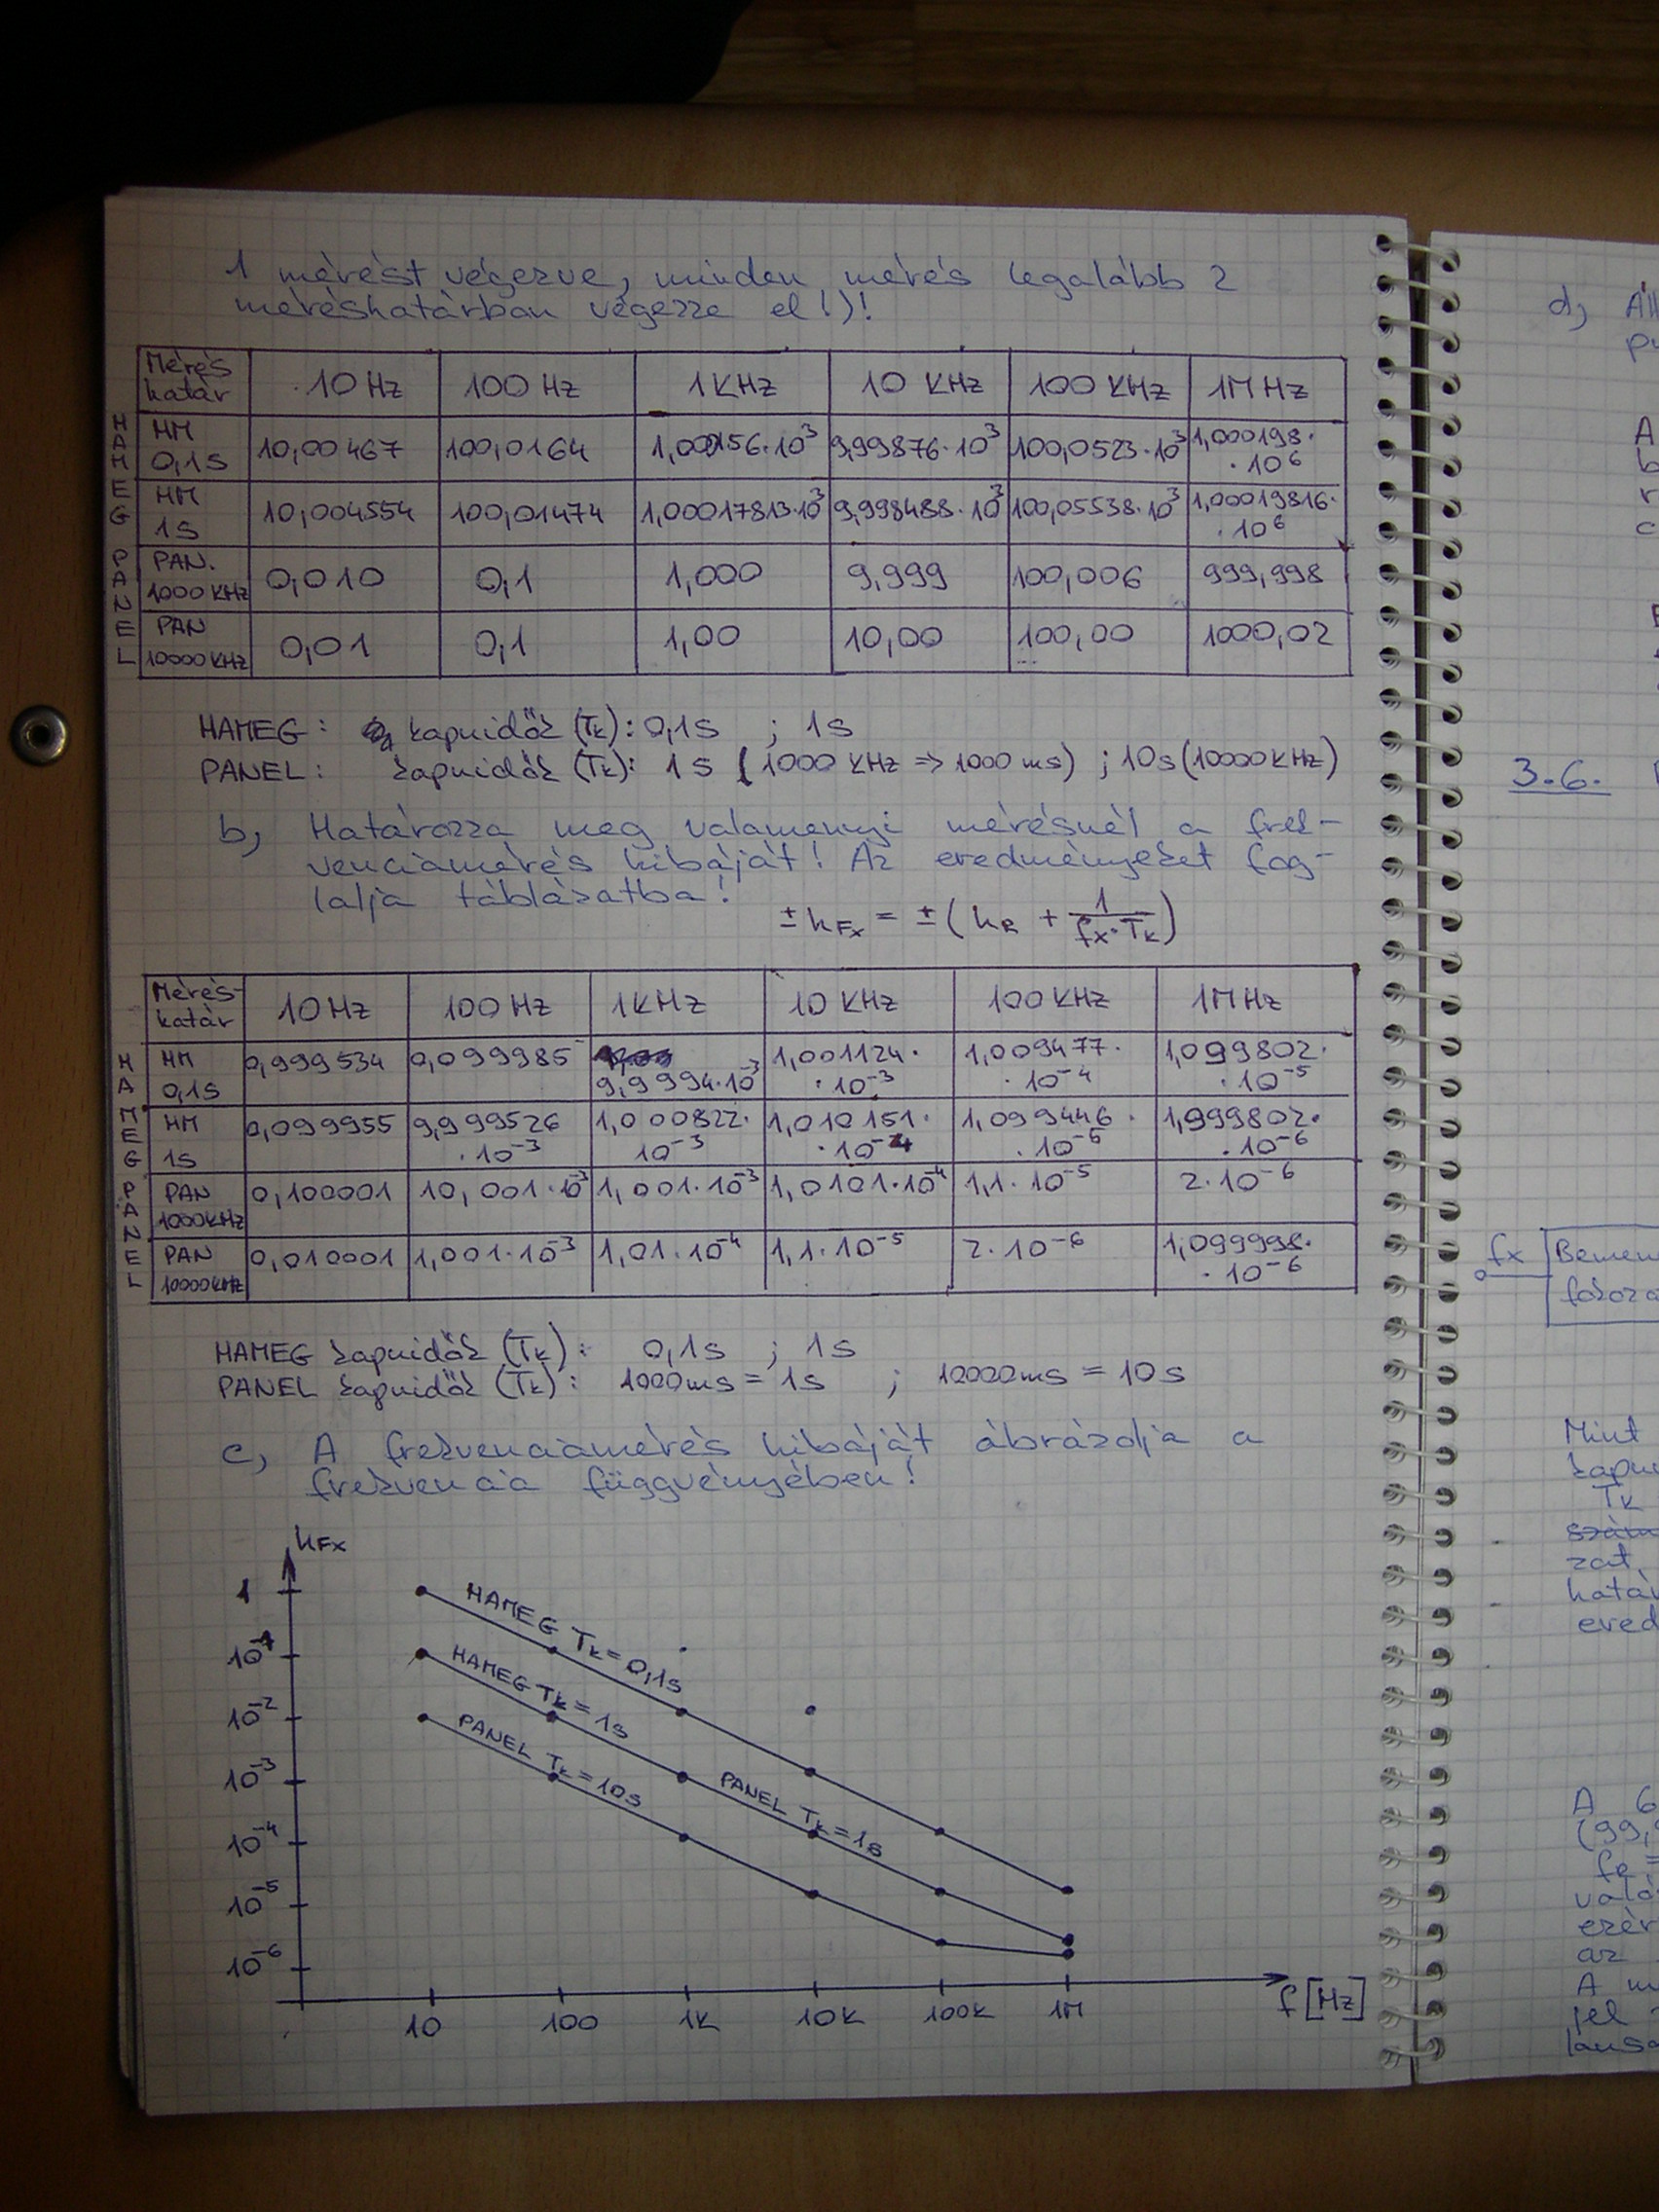 1 mérést végezve, minden mérés legalább 2
méréshatárban végezze el!)!
Mérés határ 10 Hz 100 Hz 1 KHz 10 KHz 100 KHz 1M Hz
HAMEG
HM 0,1s 10,00467 100,0164 1,00156·10³ 9,99876·10³ 100,0523·10³ 1,000198··10⁶
HM 1s 10,004554 100,01474 1,00017813·10³ 9,998488·10³ 100,05538·10³ 1,00019816··10⁶
PANEL
PAN. 1000 KHz 0,010 0,1 1,000 9,999 100,006 999,998
PAN 10000 KHz 0,01 0,1 1,00 10,00 100,00 1000,02
HAMEG: kapuidők (Tk): 0,1s ; 1s
PANEL: kapuidők (Tk): 1s (1000 KHz => 1000 ms) ; 10s (10000 KHz)
b, Határozza meg valamennyi mérésnél a frek-
venciamérés hibáját! Az eredményeket fog-
lalja táblázatba!
±hFx = ±(hR + 1/(fx·Tk))
Mérés-határ 10 Hz 100 Hz 1 KHz 10 KHz 100 KHz 1M Hz
HAMEG
HM 0,1s 0,999534 0,099985 9,9994·10⁻³ 1,001124··10⁻³ 1,009477··10⁻⁴ 1,099802··10⁻⁵
HM 1s 0,099955 9,999526·10⁻³ 1,000822·10⁻³ 1,010151··10⁻⁴ 1,099446··10⁻⁵ 1,999802··10⁻⁶
PANEL
PAN 1000 KHz 0,100001 10,001·10⁻³ 1,001·10⁻³ 1,0101·10⁻⁴ 1,1·10⁻⁵ 2·10⁻⁶
PAN 10000 KHz 0,010001 1,001·10⁻³ 1,01·10⁻⁴ 1,1·10⁻⁵ 2·10⁻⁶ 1,099998··10⁻⁶
HAMEG kapuidők (Tk): 0,1s ; 1s
PANEL kapuidők (Tk): 1000ms = 1s ; 10000ms = 10s
c, A frekvenciamérés hibáját ábrázolja a
frekvencia függvényében!
hFx
1
10⁻¹
10⁻²
10⁻³
10⁻⁴
10⁻⁵
10⁻⁶
HAMEG Tk=0,1s
HAMEG Tk=1s
PANEL Tk=1s
PANEL Tk=10s
10 100 1K 10K 100K 1M f [Hz]
d,
3.6.
fx
Mint
Tk
zat.
A 6
A
jel